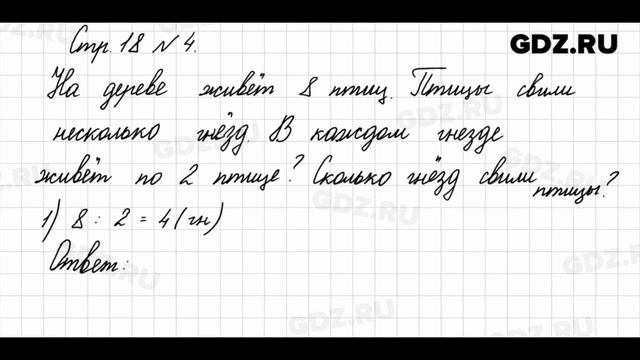 Стр. 18 № 4.
GDZ.RU
На дереве живёт 8 птиц. Птицы свили
несколько гнёзд. В каждом гнезде
живёт по 2 птице? Сколько гнёзд свили птицы?
1) 8 : 2 = 4 (гн)
Ответ:
GDZ.RU
GDZ.RU
GDZ.RU
GDZ.RU